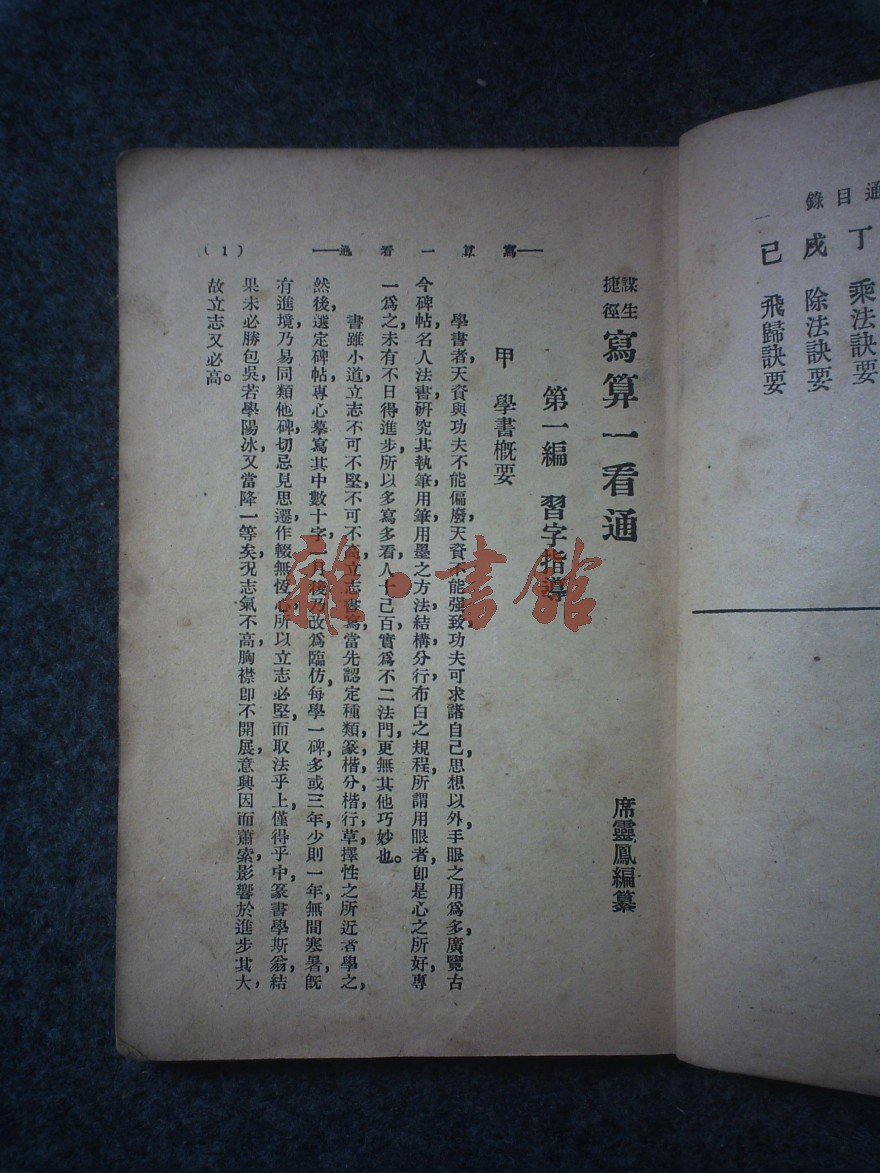 通目錄
一
丁 乘法訣要
戍 除法訣要
已 飛歸訣要
謀生捷徑 寫算一看通
席靈鳳編纂
第一編 習字指導
甲 學書概要
學書者,天資與功夫不能偏廢,天資不能强致,功夫可求諸自己思想以外,手眼之用爲多,廣覽古
今碑帖,名人法書,研究其執筆用筆用墨之方法,結構分行布白之規程,所謂用眼者,卽是心之所好,專
一爲之,未有不日得進步,所以多寫多看,人十己百,實爲不二法門,更無其他巧妙也。
書雖小道,立志不可不堅,不可不高,立志書寫,當先認定種類,篆楷分楷行草,擇性之所近者學之,
然後,選定碑帖,專心摹寫其中數十字,一月後,乃改爲臨仿,每學一碑,多或三年,少則一年,無間寒暑,旣
有進境,乃易同類他碑,切忌見思遷,作輟無恆心,所以立志必堅,而取法乎上,僅得乎中,篆書學斯翁,結
果未必勝包吳,若學陽冰,又當降一等矣,况志氣不高,胸襟卽不開展,意興因而蕭索,影響於進步其大,
故立志又必高。
寫算一看通
(1)
雜·書館